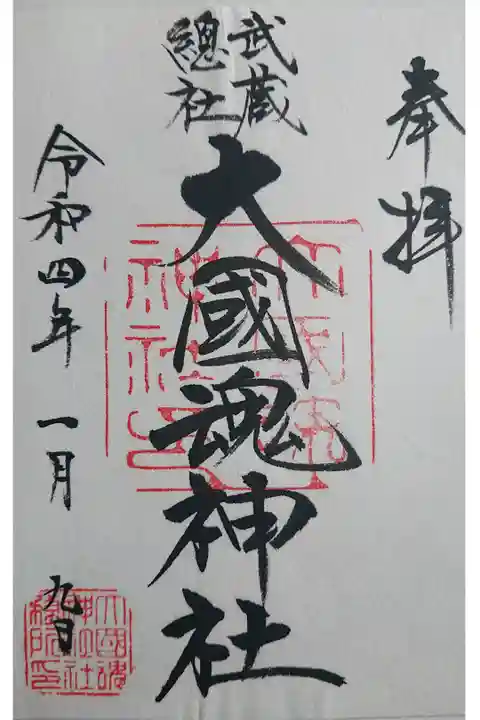 奉拝
武蔵
總社
大國魂神社
令和四年 一月 九日